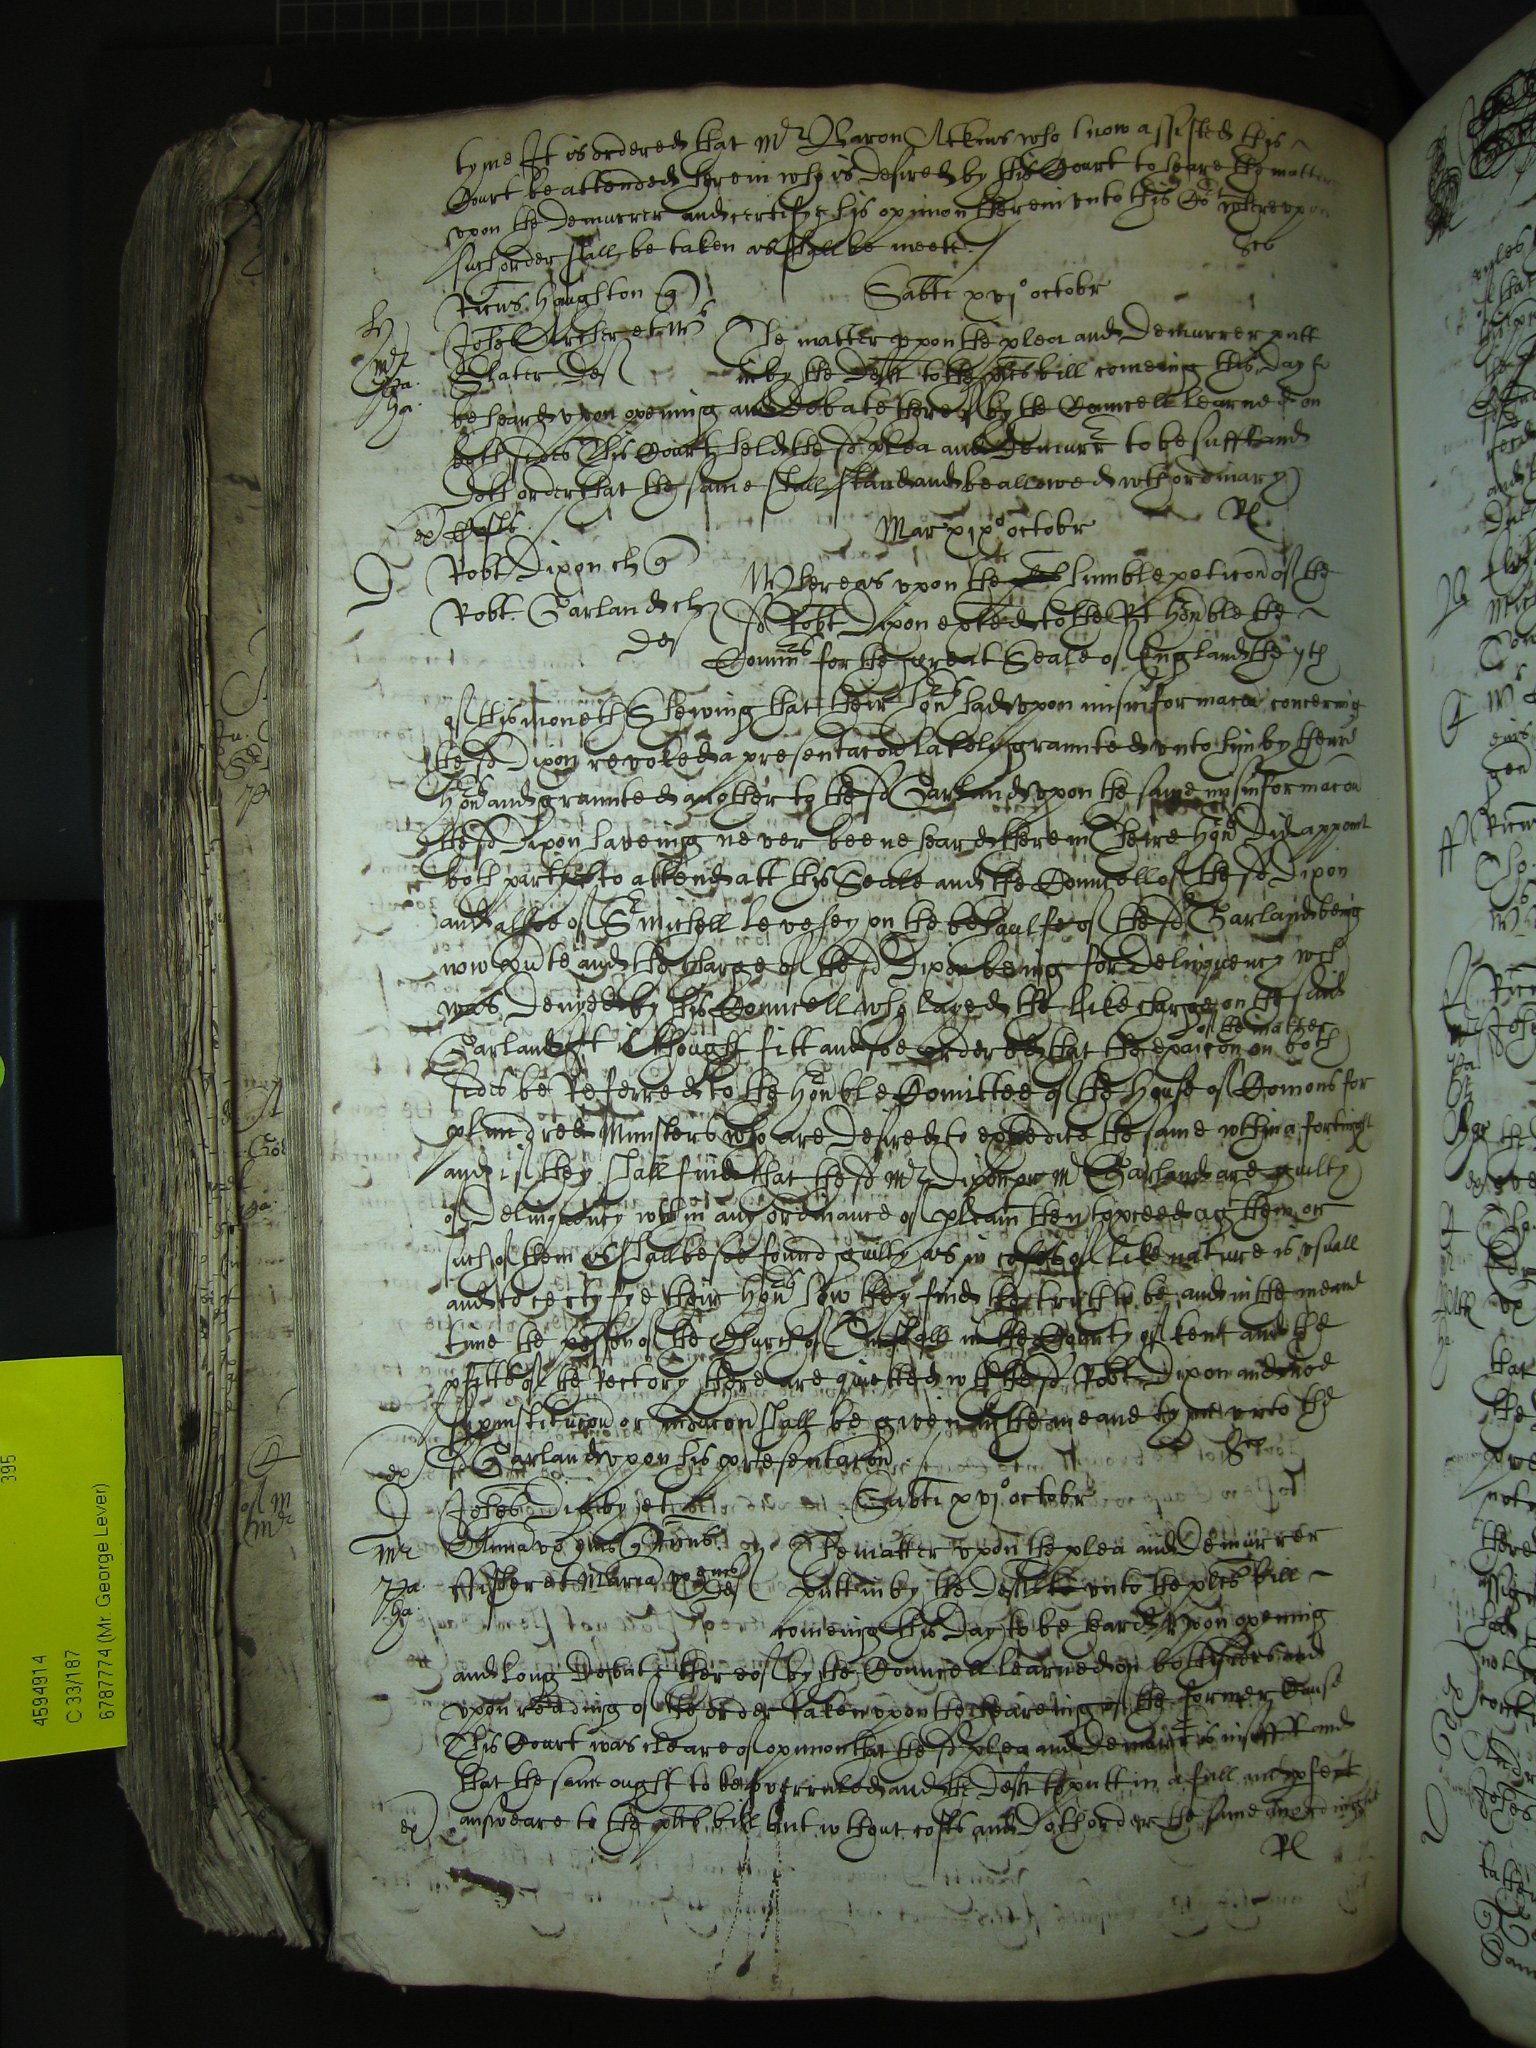 tyme It is ordered that Mr Baron Atkins who now assisted this
Court be attended herein who is desired by this Court to heare the matter
upon the demurrer and certifye his opinion therein unto this Cort whereupon
such order shall be taken as shall be meete
Ricus Haughton q
Sabti xvj° octobr
Johes Archer et
Slater def
The matter uppon the plea and Demurrer putt
in by the Deft to the plts bill comeing this day to
be heard upon opening and debate thereof by the Councell learned on
both sides This Court held the sd plea and demurrr to be sufft and
doth order that the same shall stand and be allowed wth ordinary
costs
Rl
Mar xix° octobr
Robt Dixon cler q
Robt Garland cler
def
Whereas upon the humble peticon of the
sd Robt Dixon exhted to the Rt Honble the
Comrs for the great Seale of England the 7th
of this moneth Shewing that their Honrs had upon misinformacon concerning
the sd Dixon revoked a presentacon lately graunted unto him by their
Honrs and graunted another to the sd Garland upon the same misinformacon
the sd Dixon haveing never beene heard therein Theire Honrs did appoint
both parties to attend att this Seale and the Councell of the sd Dixon
and alsoe of Sr Michell Levesey on the behaulfe of the sd Garland being
now psente and the charge of the sd Dixon being for delinquency wch
was denyed by his Councell who layed the like charge on the said
Garland It is thought fitt and soe ordered that the exaicon of the matter on both
sides be referred to the Honble Comittee of the House of Comons for
plundred Ministers who are desired to expedite the same wthin a fortnight
and if they shall find that the sd Mr Dixon or Mr Garland are guilty
of delinquency wthin any ordinance of pliamt then to pceed agt them or
such of them as shall be soe found guilty as in cases of like nature is usuall
and to certifye their Honrs how they find the truth to be and in the meane
time the possion of the Church of Tunstall in the County of Kent and the
pfitts of the rectory there are quietted wth the sd Robt Dixon and noe
institucon or induccon shall be given in the meane tyme unto the
sd Garland upon his presentacon
Sabti xvj° octobr
Johes Digby et
Anna ux eius q
Fisher et Maria ux eius
def
The matter upon the plea and Demurrer
putt in by the Defts unto the plts bill
comeing this day to be heard Upon opening
and long debate thereof by the Councell learned on both sides and
upon reading of the order taken upon the heareing of the former Cause
This Court was cleare of opinion that the sd plea and demurrr is insufft and
that the same ought to be overruled and the Deft to putt in a full and pfect
answeare to the plts bill but wthout costs and doth order the same accordingly
Rl
395
4594914
C 33/187
6787774 (Mr. George Lever)